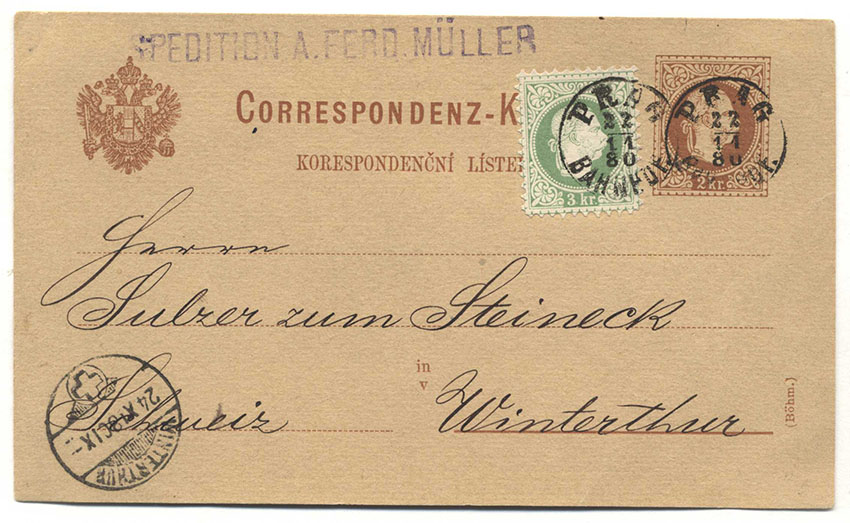 SPEDITION A. FERD. MÜLLER
CORRESPONDENZ-K
KORESPONDENČNÍ LÍSTE
3 kr.
2 kr.
PRAG
22
11
80
BAHNHOF
PRAG
22
11
80
Herrn
Sulzer zum Steineck
in
v
Schweiz
Winterthur
(Böhm.)
24 XI 80
WINTERTHUR